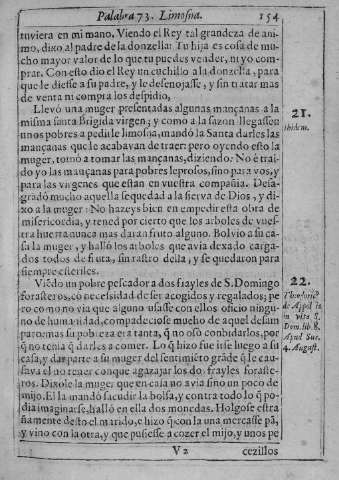 Palabra 73. Limosna. 154
tuviera en mi mano, Viendo el Rey tal grandeza de ani-
mo, dixo al padre de la donzella: Tu hija es cosa de mu-
cho mayor valor de lo que tu puedes vender, ni yo com-
prar. Con esto dio el Rey un cuchillo a la donzella, para
que le diesse a su padre, y le desenojasse, y sin tratar mas
de venta ni compra los despidio,
Llevó una muger presentadas algunas mançanas a la
misma santa Brigida virgen; y como a la sazon llegassen
unos pobres a pedirle limosna, mandó la Santa darles las
mançanas que le acabavan de traer: pero oyendo esto la
muger, tornó a tomar las mançanas, diziendo: No è trai-
do yo las mançanas para pobres leprosos, sino para vos, y
para las virgenes que estan en vuestra compañia. Desa-
gradó mucho aquella sequedad a la sierva de Dios, y di-
xo a la muger: No hazeys bien en impedir esta obra de
misericordia, y tened por cierto que los arboles de vues-
tra huerta nunca mas daran fruto alguno. Bolvio a su ca-
sa la muger, y halló los arboles que avia dexado carga-
dos todos de fruta, sin rastro della, y se quedaron para
siempre esteriles.
21.
ibidem.
Viēdo un pobre pescador a dos frayles de S. Domingo
forasteros, cō necessidad de ser acogidos y regalados; pe
ro como no via que alguno usasse con ellos oficio ningu-
no de humanidad, compadeciose mucho de aquel desam
paro: mas su pobreza era tanta, q̄ no osó conbidarlos, por
q̄ no tenia q̄ darles a comer. Lo q̄ hizo fue irse luego a su
casa, y dar parte a su muger del sentimiēto grāde q̄ le cau-
sava el no tener conque agazajar los dos frayles foraste-
ros. Dixole la muger que en casa no avia sino un poco de
mijo. El la mandó sacudir la bolsa, y contra todo lo q̄ po-
dia imaginarse, halló en ella dos monedas. Holgose estra
ñamente desto el marido, e hizo q̄ con la una mercasse pā,
y vino con la otra, y que pusiesse a cozer el mijo, y unos pe
22.
de Appol
in vita S.
Dom. lib. 8.
Apud Sur.
4. August.
V 2 cezillos